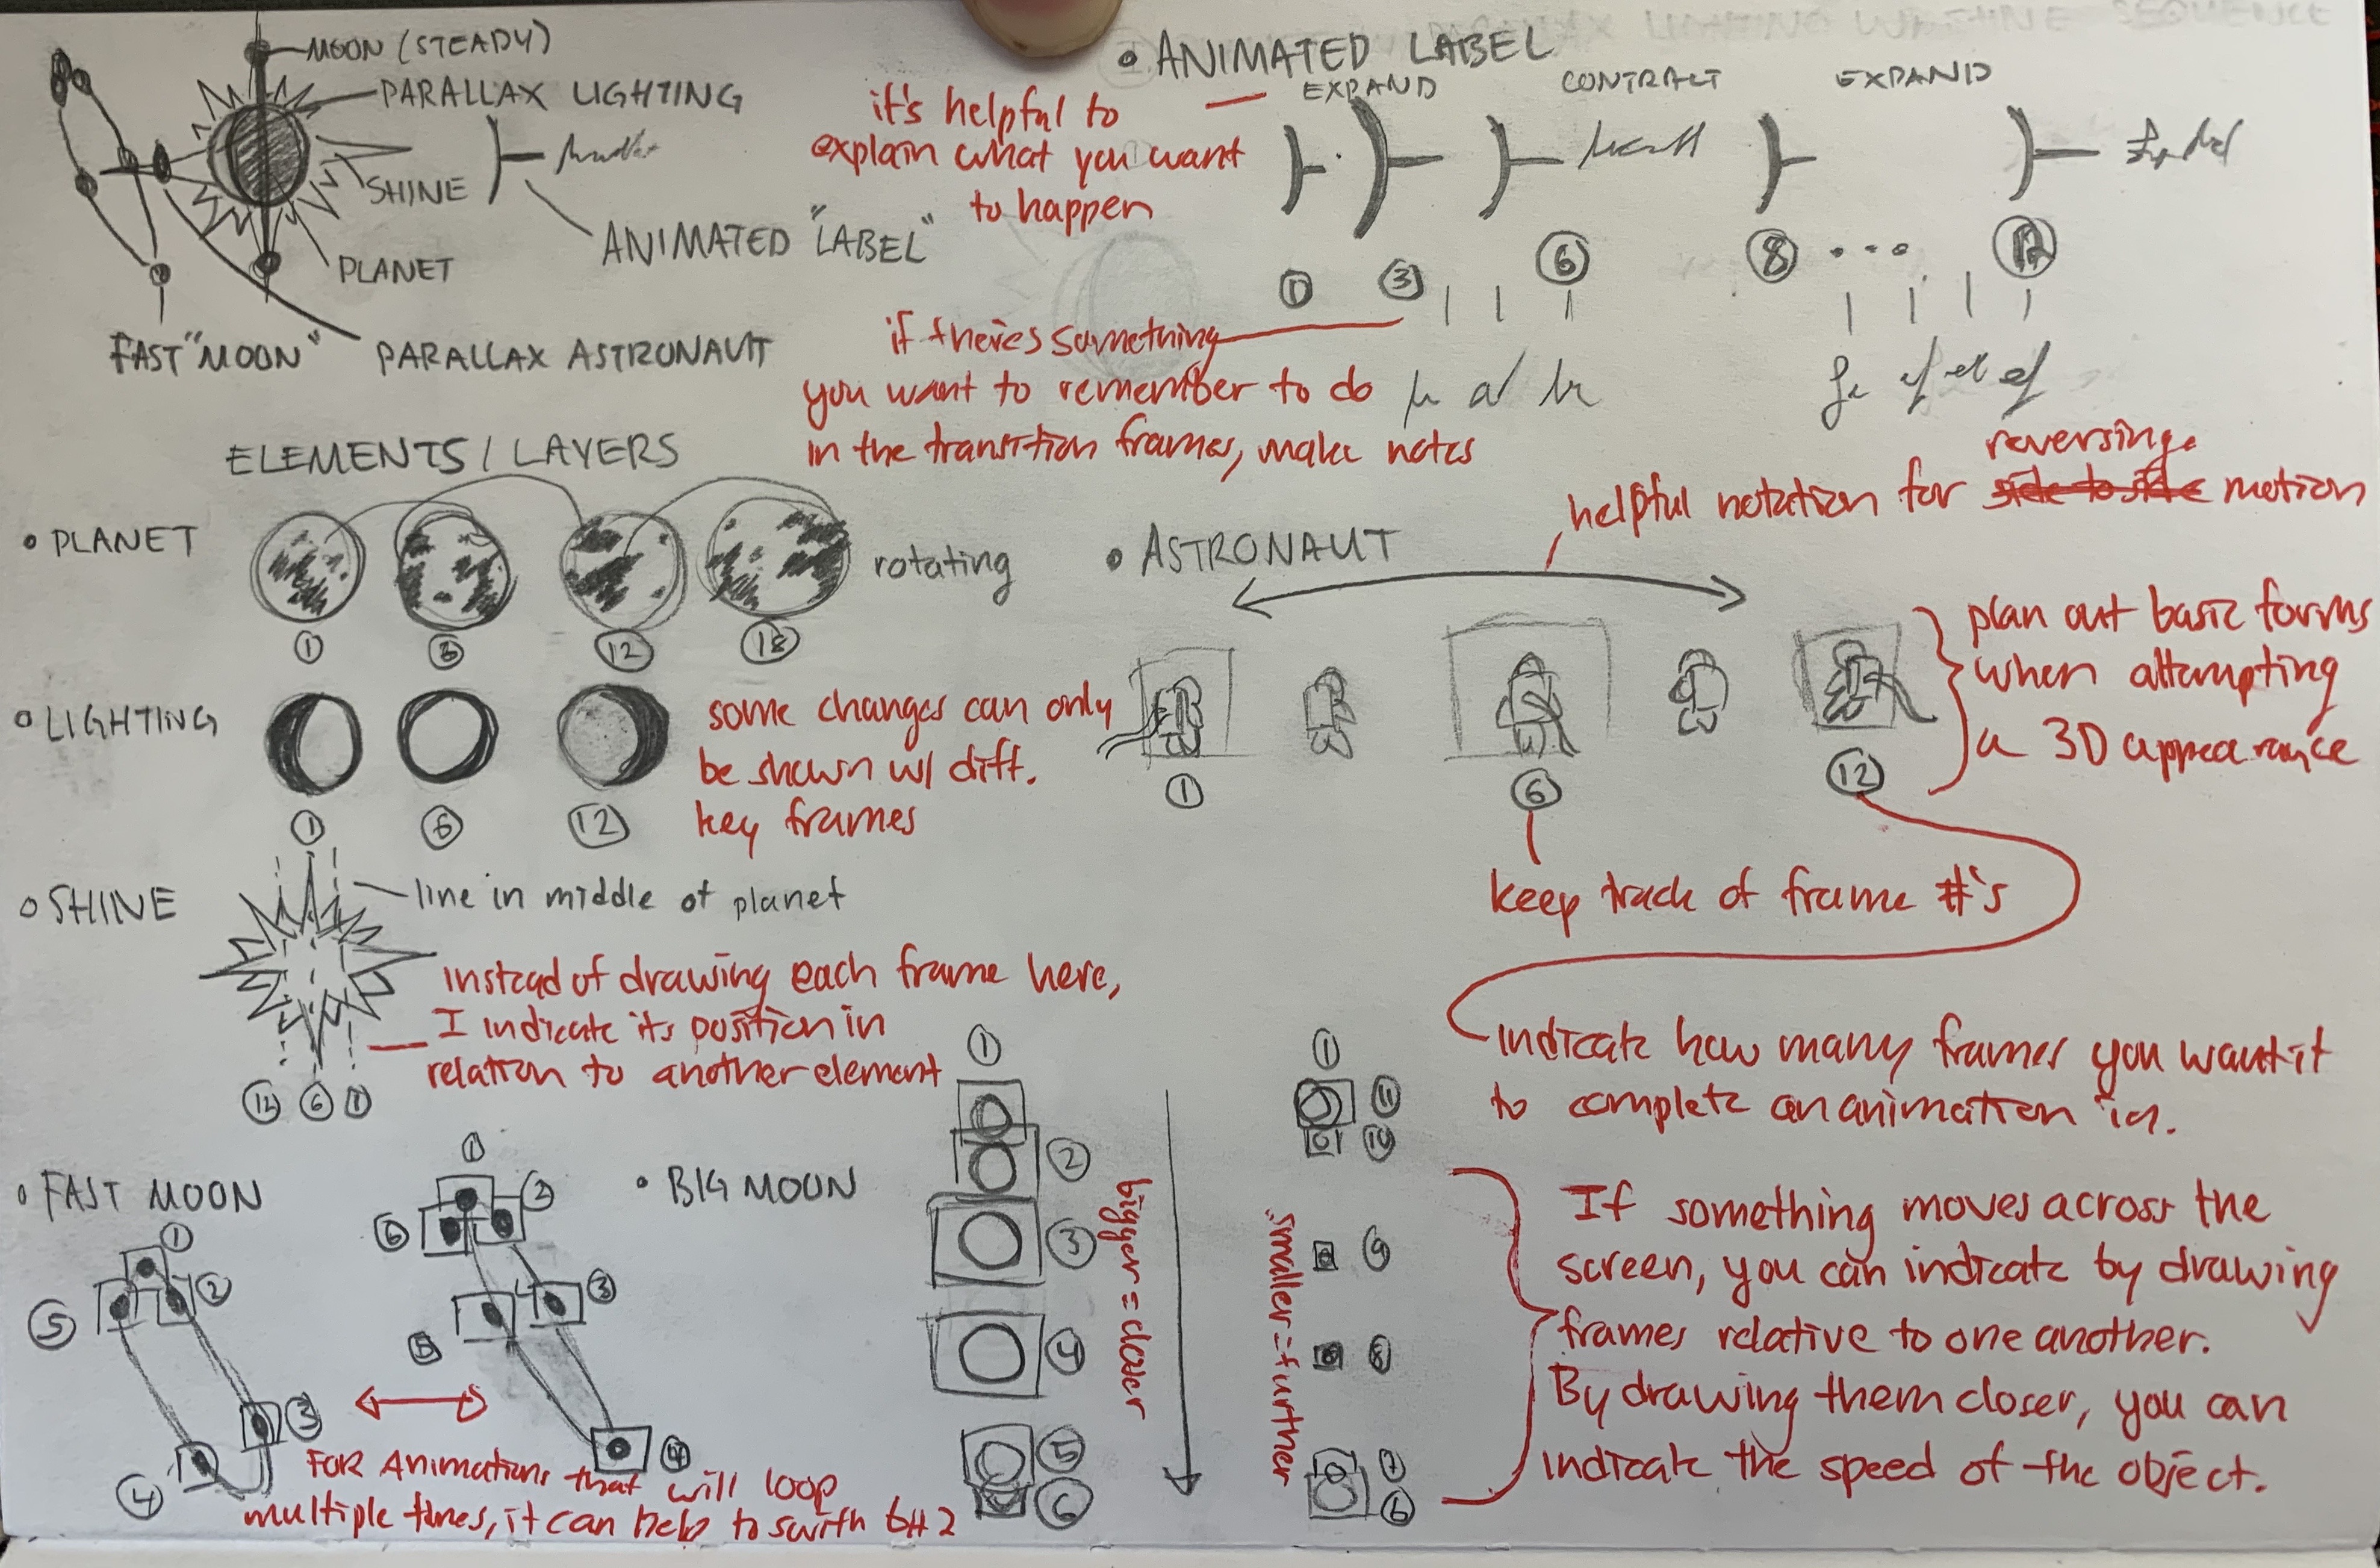 MOON (STEADY)
PARALLAX LIGHTING
SHINE
ANIMATED "LABEL"
PLANET
FAST "MOON"
PARALLAX ASTRONAUT
• ANIMATED LABEL
EXPAND CONTRACT EXPAND
it's helpful to
explain what you want
to happen
1 3 6 8 ... 12
if there's something
you want to remember to do
in the transition frames, make notes
ELEMENTS / LAYERS
• PLANET
rotating
1 6 12 18
• LIGHTING
1 6 12
some changes can only
be shown w/ diff.
key frames
• SHINE
line in middle of planet
Instead of drawing each frame here,
I indicate its position in
relation to another element
12 6 1
reversing
helpful notation for side to side motion
• ASTRONAUT
1 6 12
plan out basic forms
when attempting
a 3D appearance
keep track of frame #'s
indicate how many frames you want it
to complete an animation in.
• FAST MOON
1
2
3
4
5
1
2
3
4
5
6
FOR Animations that will loop
multiple times, it can help to swith btt 2
• BIG MOON
1
2
3
4
5
6
bigger = closer
1
11
10
9
8
7
6
smaller = further
If something moves across the
screen, you can indicate by drawing
frames relative to one another.
By drawing them closer, you can
indicate the speed of the object.